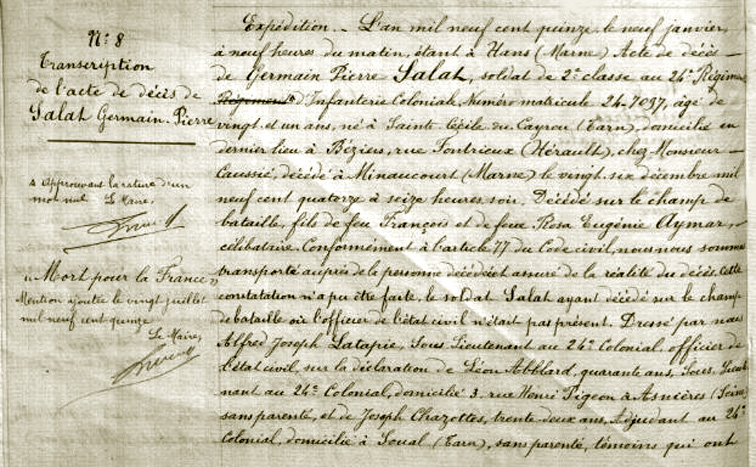 N: 8
Transcription
de l'acte de décès de
Salat Germain-Pierre
Approuvant la rature d'un
mot nul Le Maire,
"Mort pour la France"
Mention ajoutée le vingt juillet
mil neuf cent quinze
Le Maire,
Expédition. - L'an mil neuf cent quinze le neuf janvier,
à neuf heures du matin, étant à Hans (Marne) Acte de décès -
de Germain Pierre Salat, soldat de 2e classe au 24e Régime
Régiment d'Infanterie Coloniale. Numéro matricule 24-7097, âgé de
vingt et un ans, né à Sainte Cécile du Cayrou (Tarn), domicilié en
dernier lieu à Béziers, rue Fontrieux (Hérault), chez Monsieur -
Caussié, décédé à Minaucourt (Marne) le vingt six décembre mil
neuf cent quatorze à seize heures soir. Décédé sur le champ de
bataille, fils de feu François et de feue Rosa Eugénie Aymar,
célibataire. Conformément à l'article 77 du Code civil, nous nous somme
transporté auprès de la personne décédée et assuré de la réalité du décès, cette
constatation n'a pu être faite, le soldat Salat ayant décédé sur le champ
de bataille où l'officier de l'état civil n'était pas présent. Dressé par nous
Alfred Joseph Latapie, Sous Lieutenant au 24e Colonial, officier de
l'état civil, sur la déclaration de Léon Abblard, quarante ans, Sous. Lieute
nant au 24e Colonial, domicilié 3, rue Henri Pigeon à Asnières (Seine)
sans parenté, et de Joseph Chazottes, trente deux ans, Adjudant au 24e
Colonial, domicilié à Soual (Tarn), sans parenté, témoins qui ont